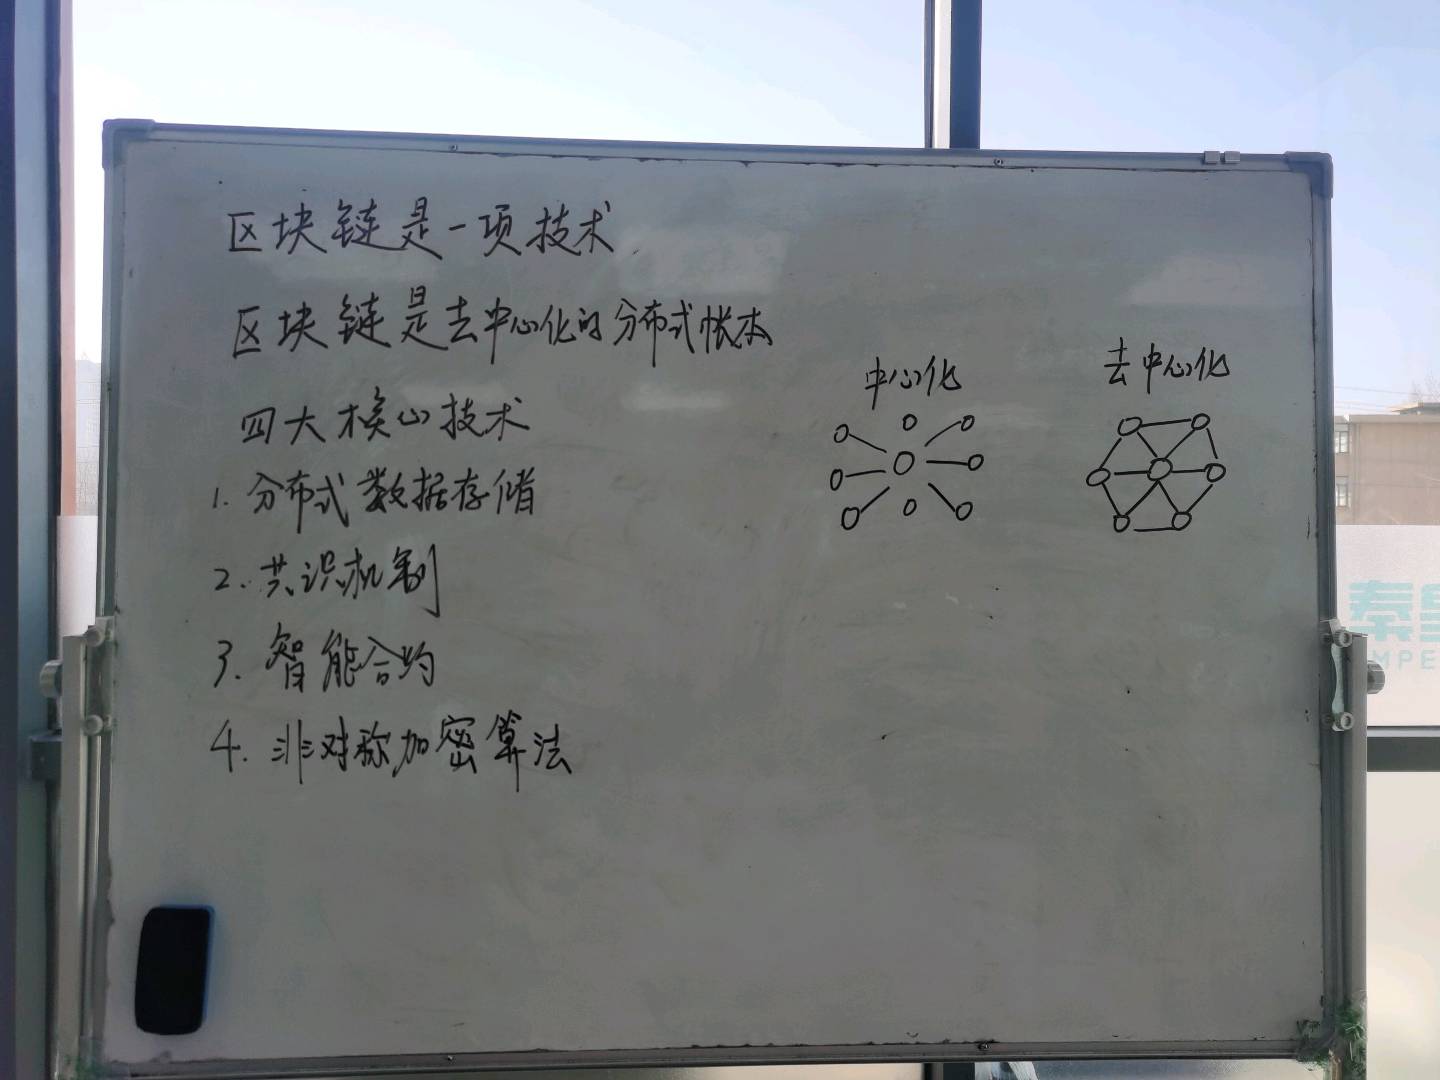 区块链是一项技术
区块链是去中心化的分布式帐本
四大核心技术
1. 分布式数据存储
2. 共识机制
3. 智能合约
4. 非对称加密算法
中心化
去中心化
秦皇
MPE